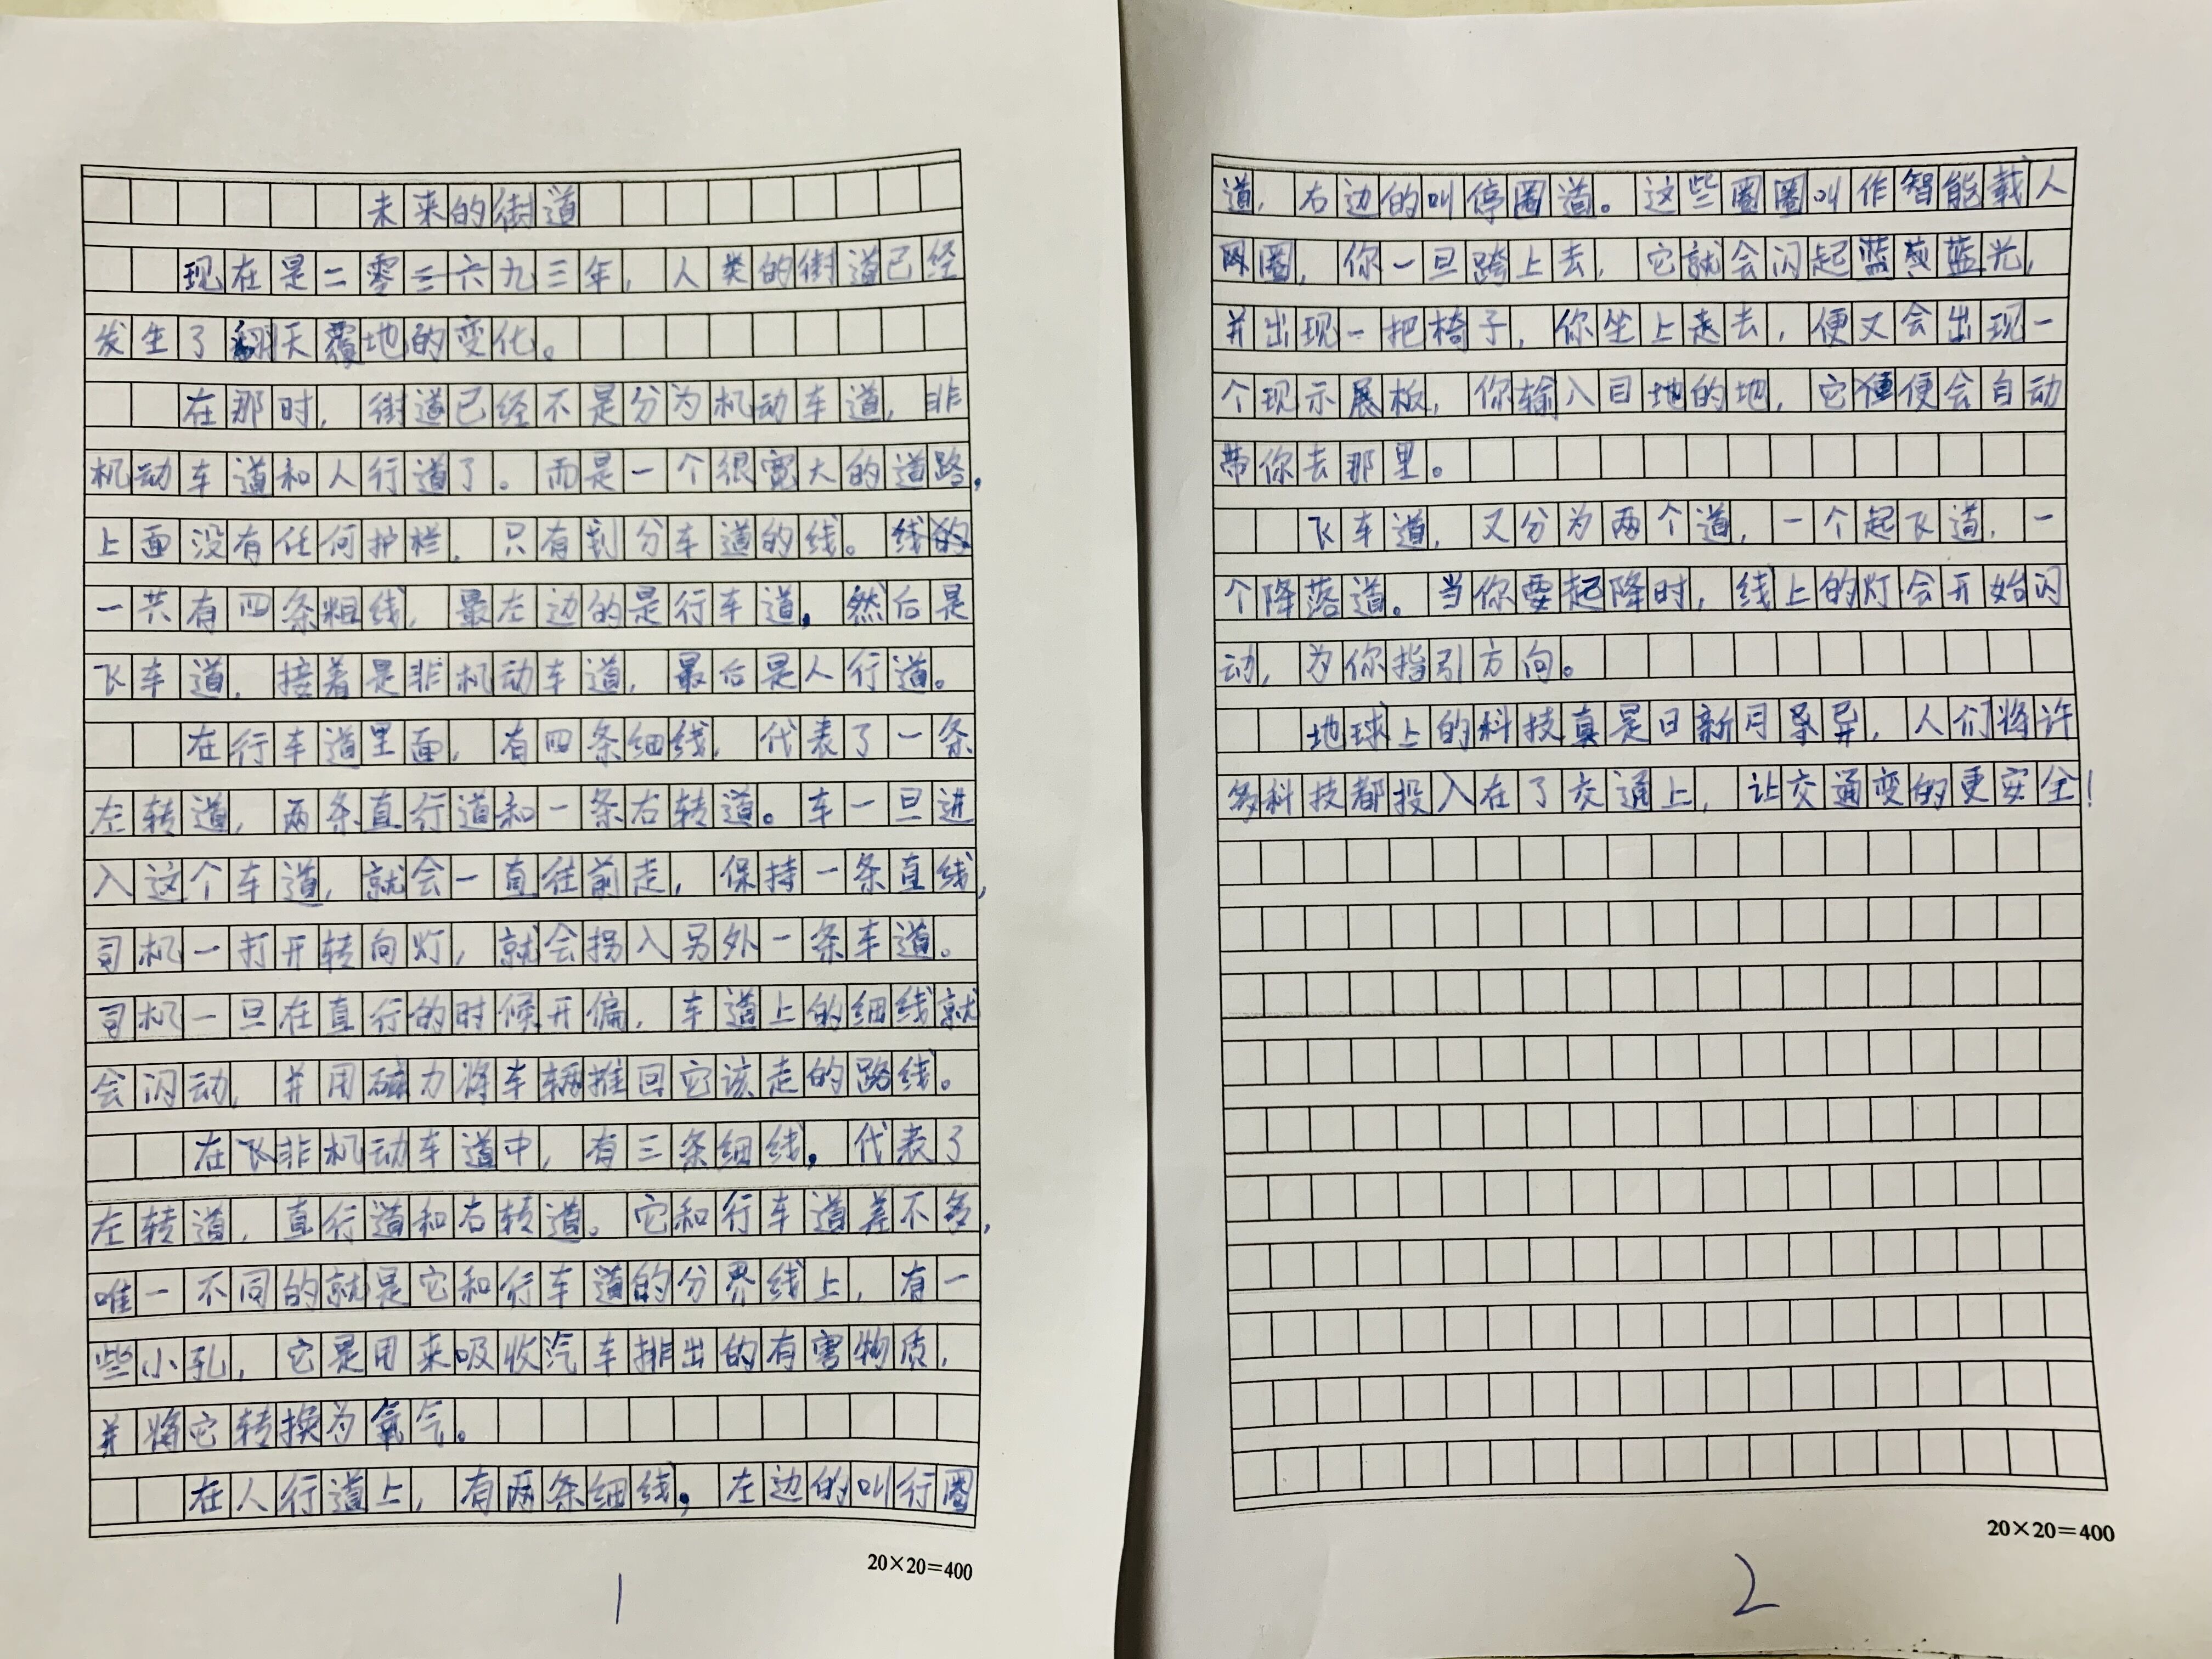 未来的街道
现在是二零三六九三年，人类的街道已经
发生了翻天覆地的变化。
在那时，街道已经不是分为机动车道，非
机动车道和人行道了。而是一个很宽大的道路，
上面没有任何护栏，只有划分车道的线。线的
一共有四条粗线，最左边的是行车道，然后是
飞车道，接着是非机动车道，最后是人行道。
在行车道里面，有四条细线，代表了一条
左转道，两条直行道和一条右转道。车一旦进
入这个车道，就会一直往前走，保持一条直线，
司机一打开转向灯，就会拐入另外一条车道。
司机一旦在直行的时候开偏，车道上的细线就
会闪动，并用磁力将车辆推回它该走的路线。
在飞非机动车道中，有三条细线，代表了
左转道，直行道和右转道。它和行车道差不多，
唯一不同的就是它和行车道的分界线上，有一
些小孔，它是用来吸收汽车排出的有害物质，
并将它转换为氧气。
在人行道上，有两条细线，左边的叫行圈
20×20=400
1
道，右边的叫停圈道。这些圈圈叫作智能载人
圈，你一旦跨上去，它就会闪起蓝蓝光，
并出现一把椅子，你坐上去，便又会出现一
个现示展板，你输入目地的地，它便会自动
带你去那里。
飞车道，又分为两个道，一个起飞道，一
个降落道。当你要起降时，线上的灯会开始闪
动，为你指引方向。
地球上的科技真是日新月异，人们将许
多科技都投入在了交通上，让交通变的更安全！
20×20=400
2